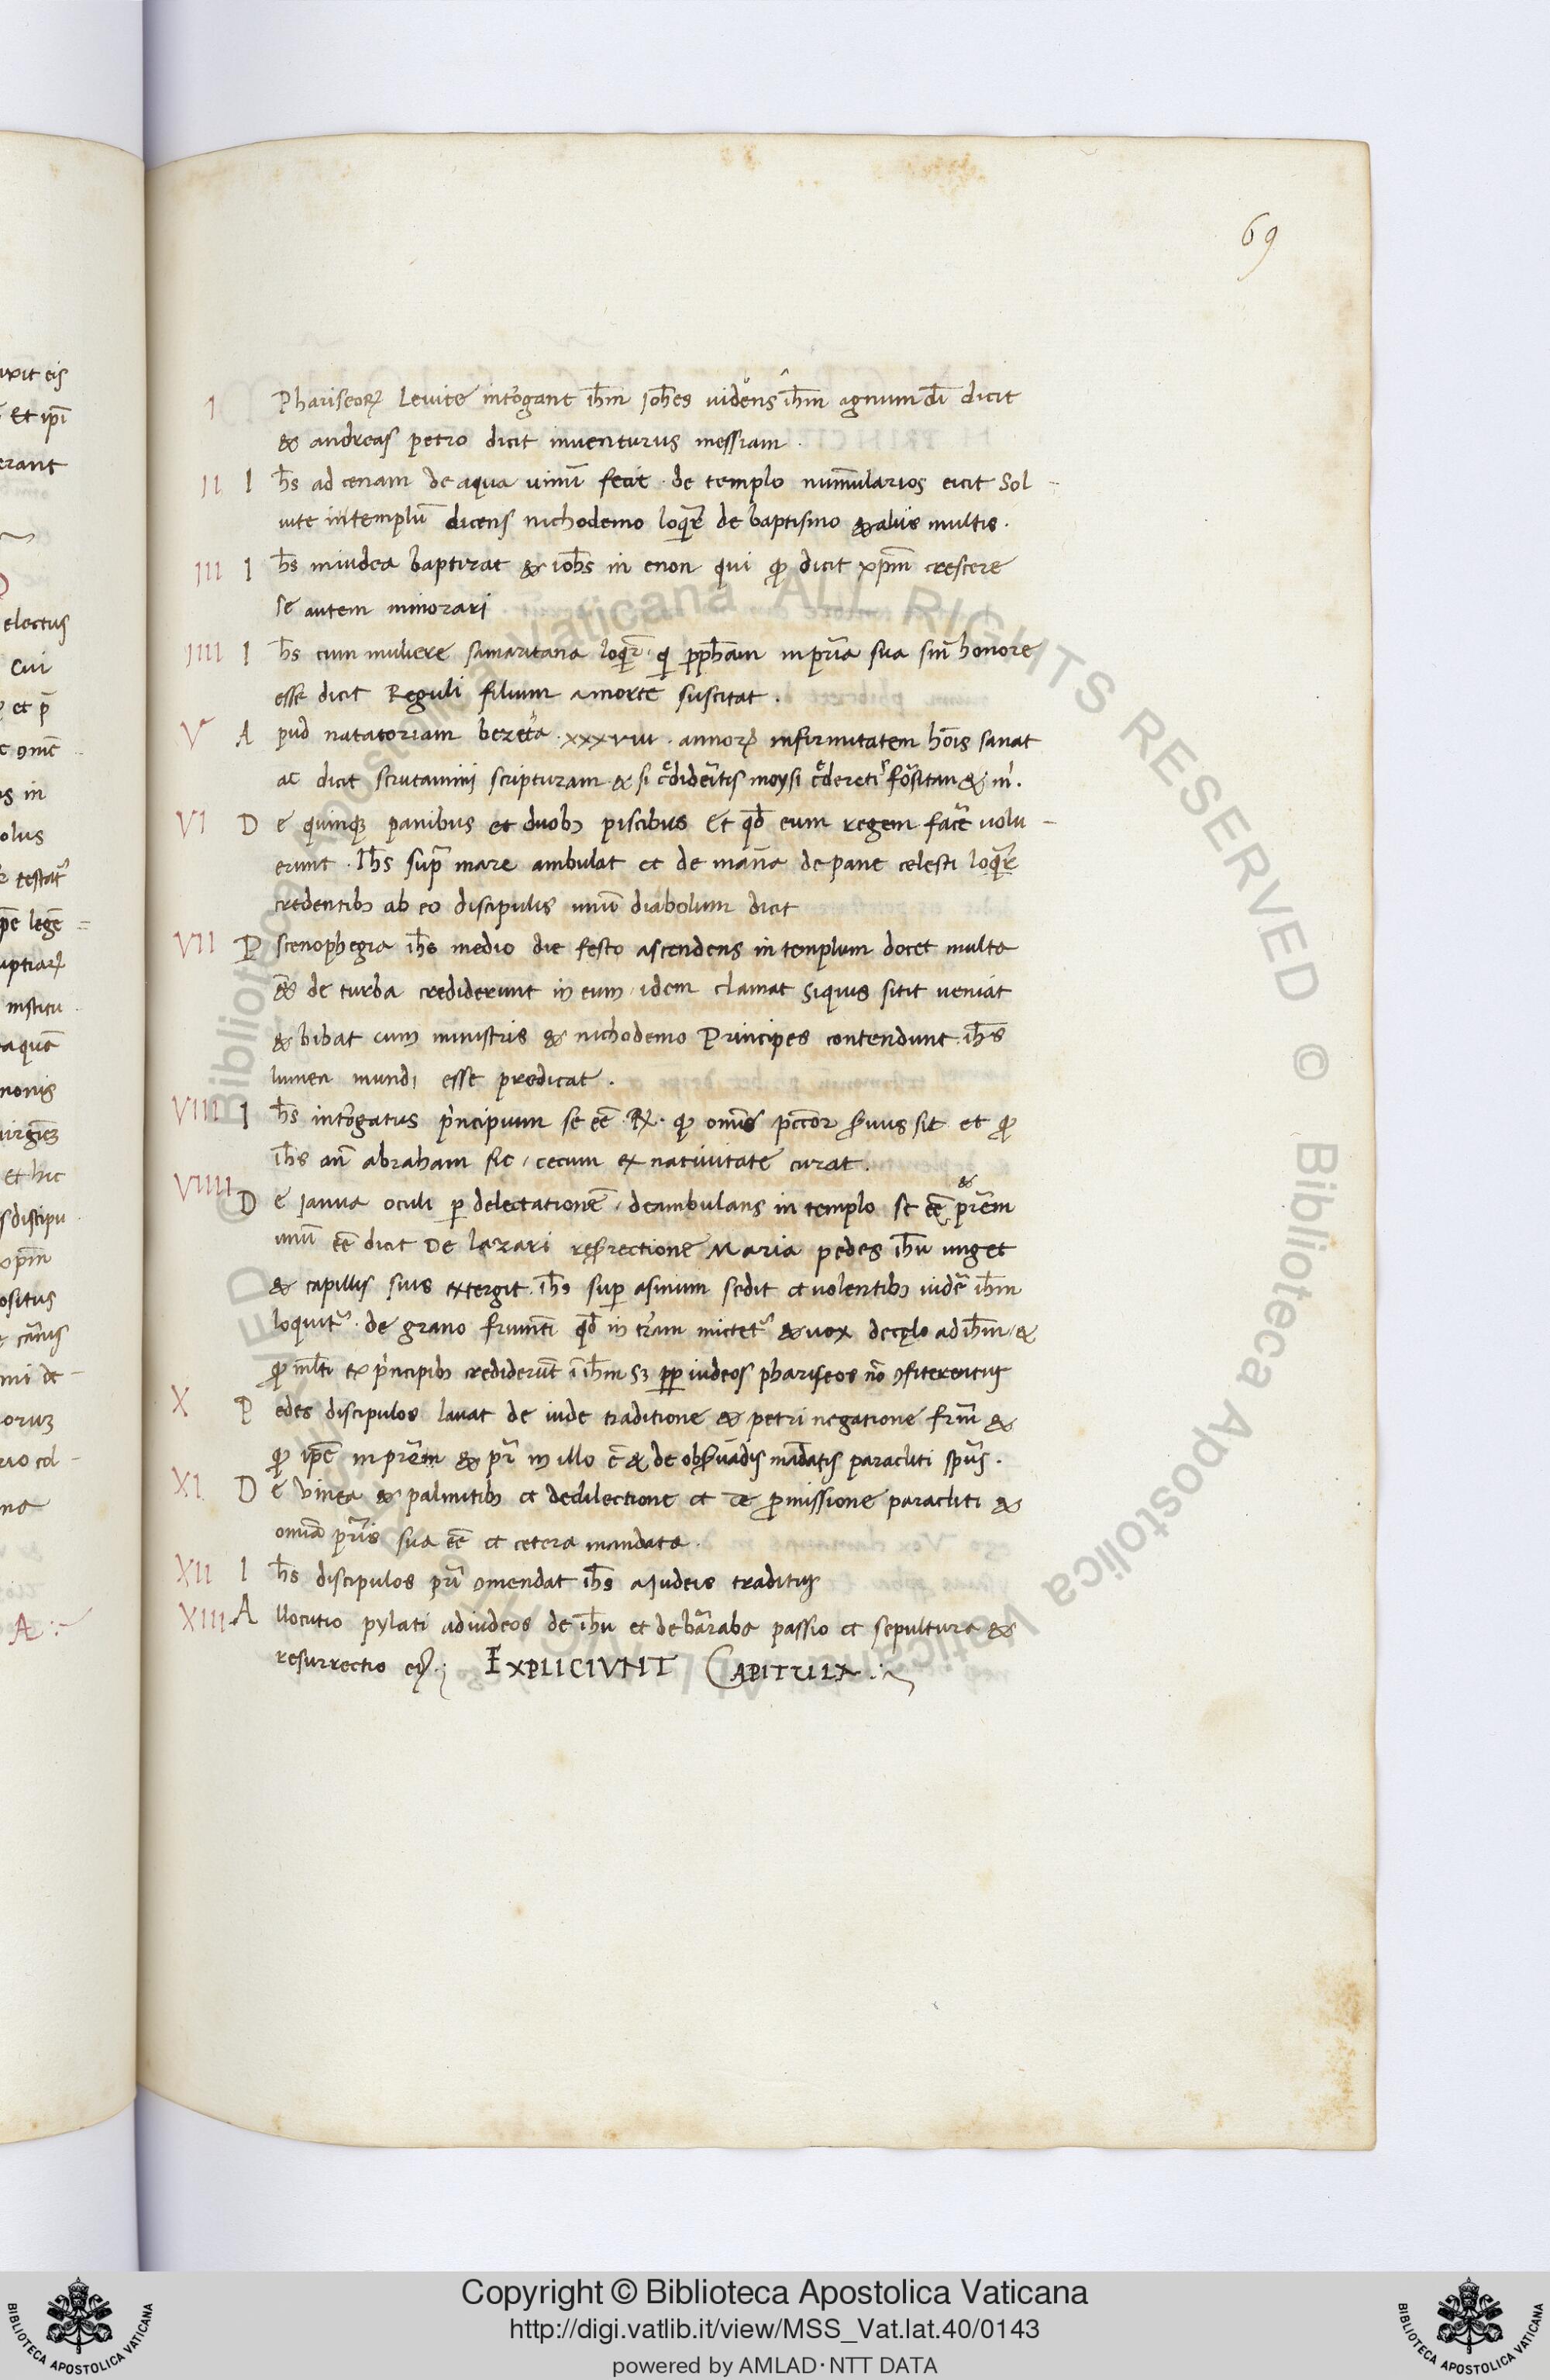 69
I Phariseoꝝ Leuite introgant ih̅m joh̅es uidens ih̅m agnum di̅ dicit
& andreas petro dicit inuenturus messiam.
II I h̅s ad cenam de aqua uinu̅ fecit. de templo num̅ularios eicit Sol-
uite in templu̅ dicens nichodemo loqr̅ de baptismo & aliis multis.
III I h̅s in iudea baptizat & ioh̅s in enon qui ꝙ dicit xpm̅ crescere
se autem minorari
IIII I h̅s cum muliere samaritana loqr̅ q̅ pph̅am in pr̅ia sua sin̅ honore
esse dicit Reguli filium a morte suscitat.
V A pud natatoriam bezeta .xxxviii. annoꝝ infirmitatem ho̅is sanat
ac dicit scrutamini scripturam & si credideritis moysi crederetis forsitan & m.
VI D e quinqꝫ panibus et duobꝫ piscibus Et qd̅ eum regem facere uolu-
erunt. Ih̅s supra mare ambulat et de man̅a de pane celesti loqr̅
credentibꝫ ab eo discipulis unu̅ diabolum dicit
VII P scenophegia ih̅s medio die festo ascendens in templum docet multa
& de turba crediderunt in eum. idem clamat Siquis sitit ueniat
& bibat cum ministris & nichodemo Principes contendunt. ih̅s
lumen mundi esse predicat.
VIII I h̅s introgatus principium se ee̅ R̅. ꝙ omnis pcc̅or seruus sit et ꝙ
ih̅s an̅ abraham sic, cecum ex natiuitate curat.
VIIII D e janua oculi ꝑ delectatione̅, deambulans in templo se ee̅ & pr̅em
unu̅ ee̅ dicit De lazari resurrectione Maria pedes ih̅u unget
& capillis suis extergit. ih̅s super asinum sedit et uolentibꝫ uidere ih̅m
loquit᷑. de grano frumti̅ qd̅ in tr̅am mictet᷑ & uox de cęlo ad ih̅m, &
ꝙ ml̅ti ex principibꝫ crediderut̅ i̅ ih̅m sꝫ pp̅ iudeos phariseos no̅ ꝯfiterentur
X P edes discipulos lauat de iude traditione & petri negatione frm̅ &
ꝙ ipe̅ in pr̅em & pr̅ in illo e̅ & de obseruadis̅ mandatis paracliti spus̅.
XI D e Vinea & palmitibꝫ et de dilectione et de promissione paracliti &
omia̅ pr̅is sua ee̅ et cetera mandata.
XII I h̅s discipulos pr̅i ꝯmendat ih̅s a Judeis traditur
XIII A llocutio pylati ad iudeos de ih̅u et de baraba passio et sepultura &
resurrectio eiꝰ; EXPLICIVNT CAPITULA
Copyright © Biblioteca Apostolica Vaticana
http://digi.vatlib.it/view/MSS_Vat.lat.40/0143
powered by AMLAD·NTT DATA
BIBLIOTECA APOSTOLICA VATICANA
BIBLIOTECA APOSTOLICA VATICANA